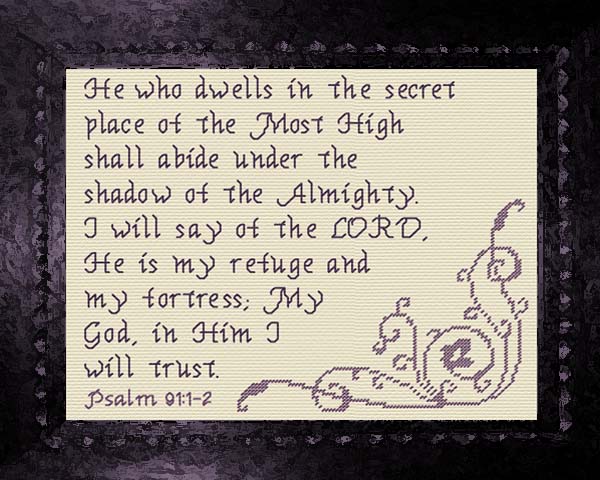 He who dwells in the secret
place of the Most High
shall abide under the
shadow of the Almighty.
I will say of the LORD,
He is my refuge and
my fortress; My
God, in Him I
will trust.
Psalm 91:1-2